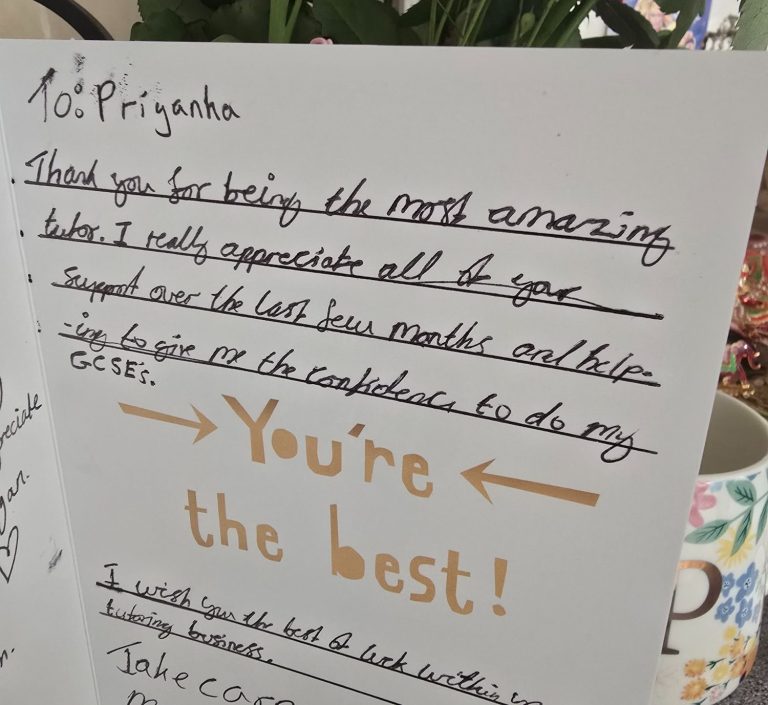 To: Priyanha
Thank you for being the most amazing
tutor. I really appreciate all of your
support over the last few months and help-
-ing to give me the confidence to do my
GCSE's.
You're
the best!
I wish you the best of luck within
tutoring business.
Take care
reciate
gan.
P